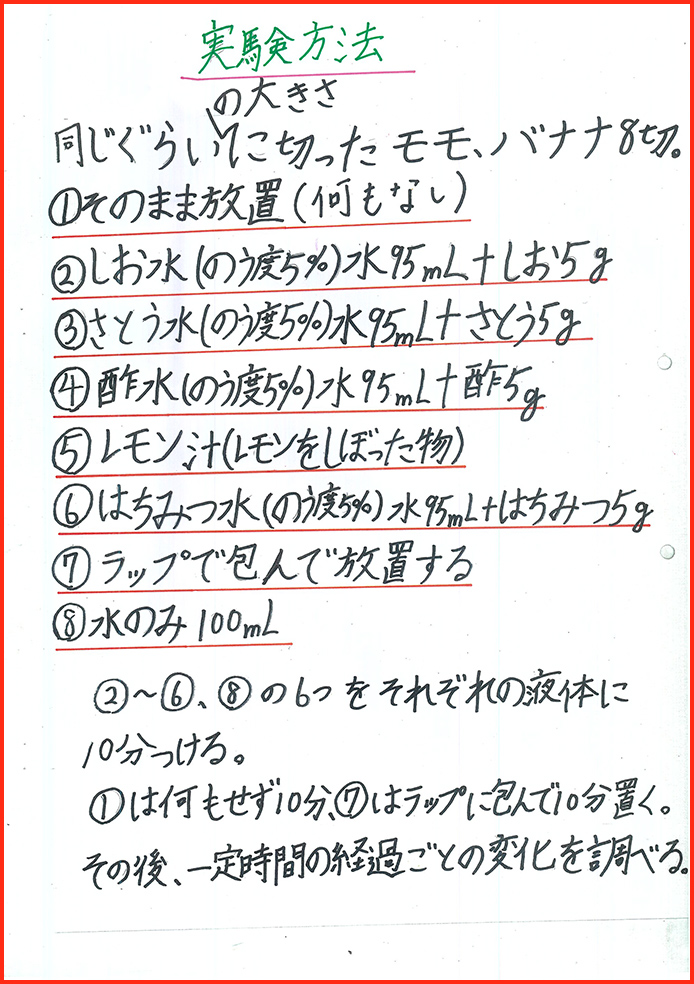 実験方法
の大きさ
同じぐらいに切ったモモ、バナナ8切。
①そのまま放置(何もなし)
②しお水(のう度5%)水95mL+しお5g
③さとう水(のう度5%)水95mL+さとう5g
④酢水(のう度5%)水95mL+酢5g
⑤レモン汁(レモンをしぼった物)
⑥はちみつ水(のう度5%)水95mL+はちみつ5g
⑦ラップで包んで放置する
⑧水のみ100mL
②～⑥、⑧の6つをそれぞれの液体に
10分つける。
①は何もせず10分、⑦はラップに包んで10分置く。
その後、一定時間の経過ごとの変化を調べる。